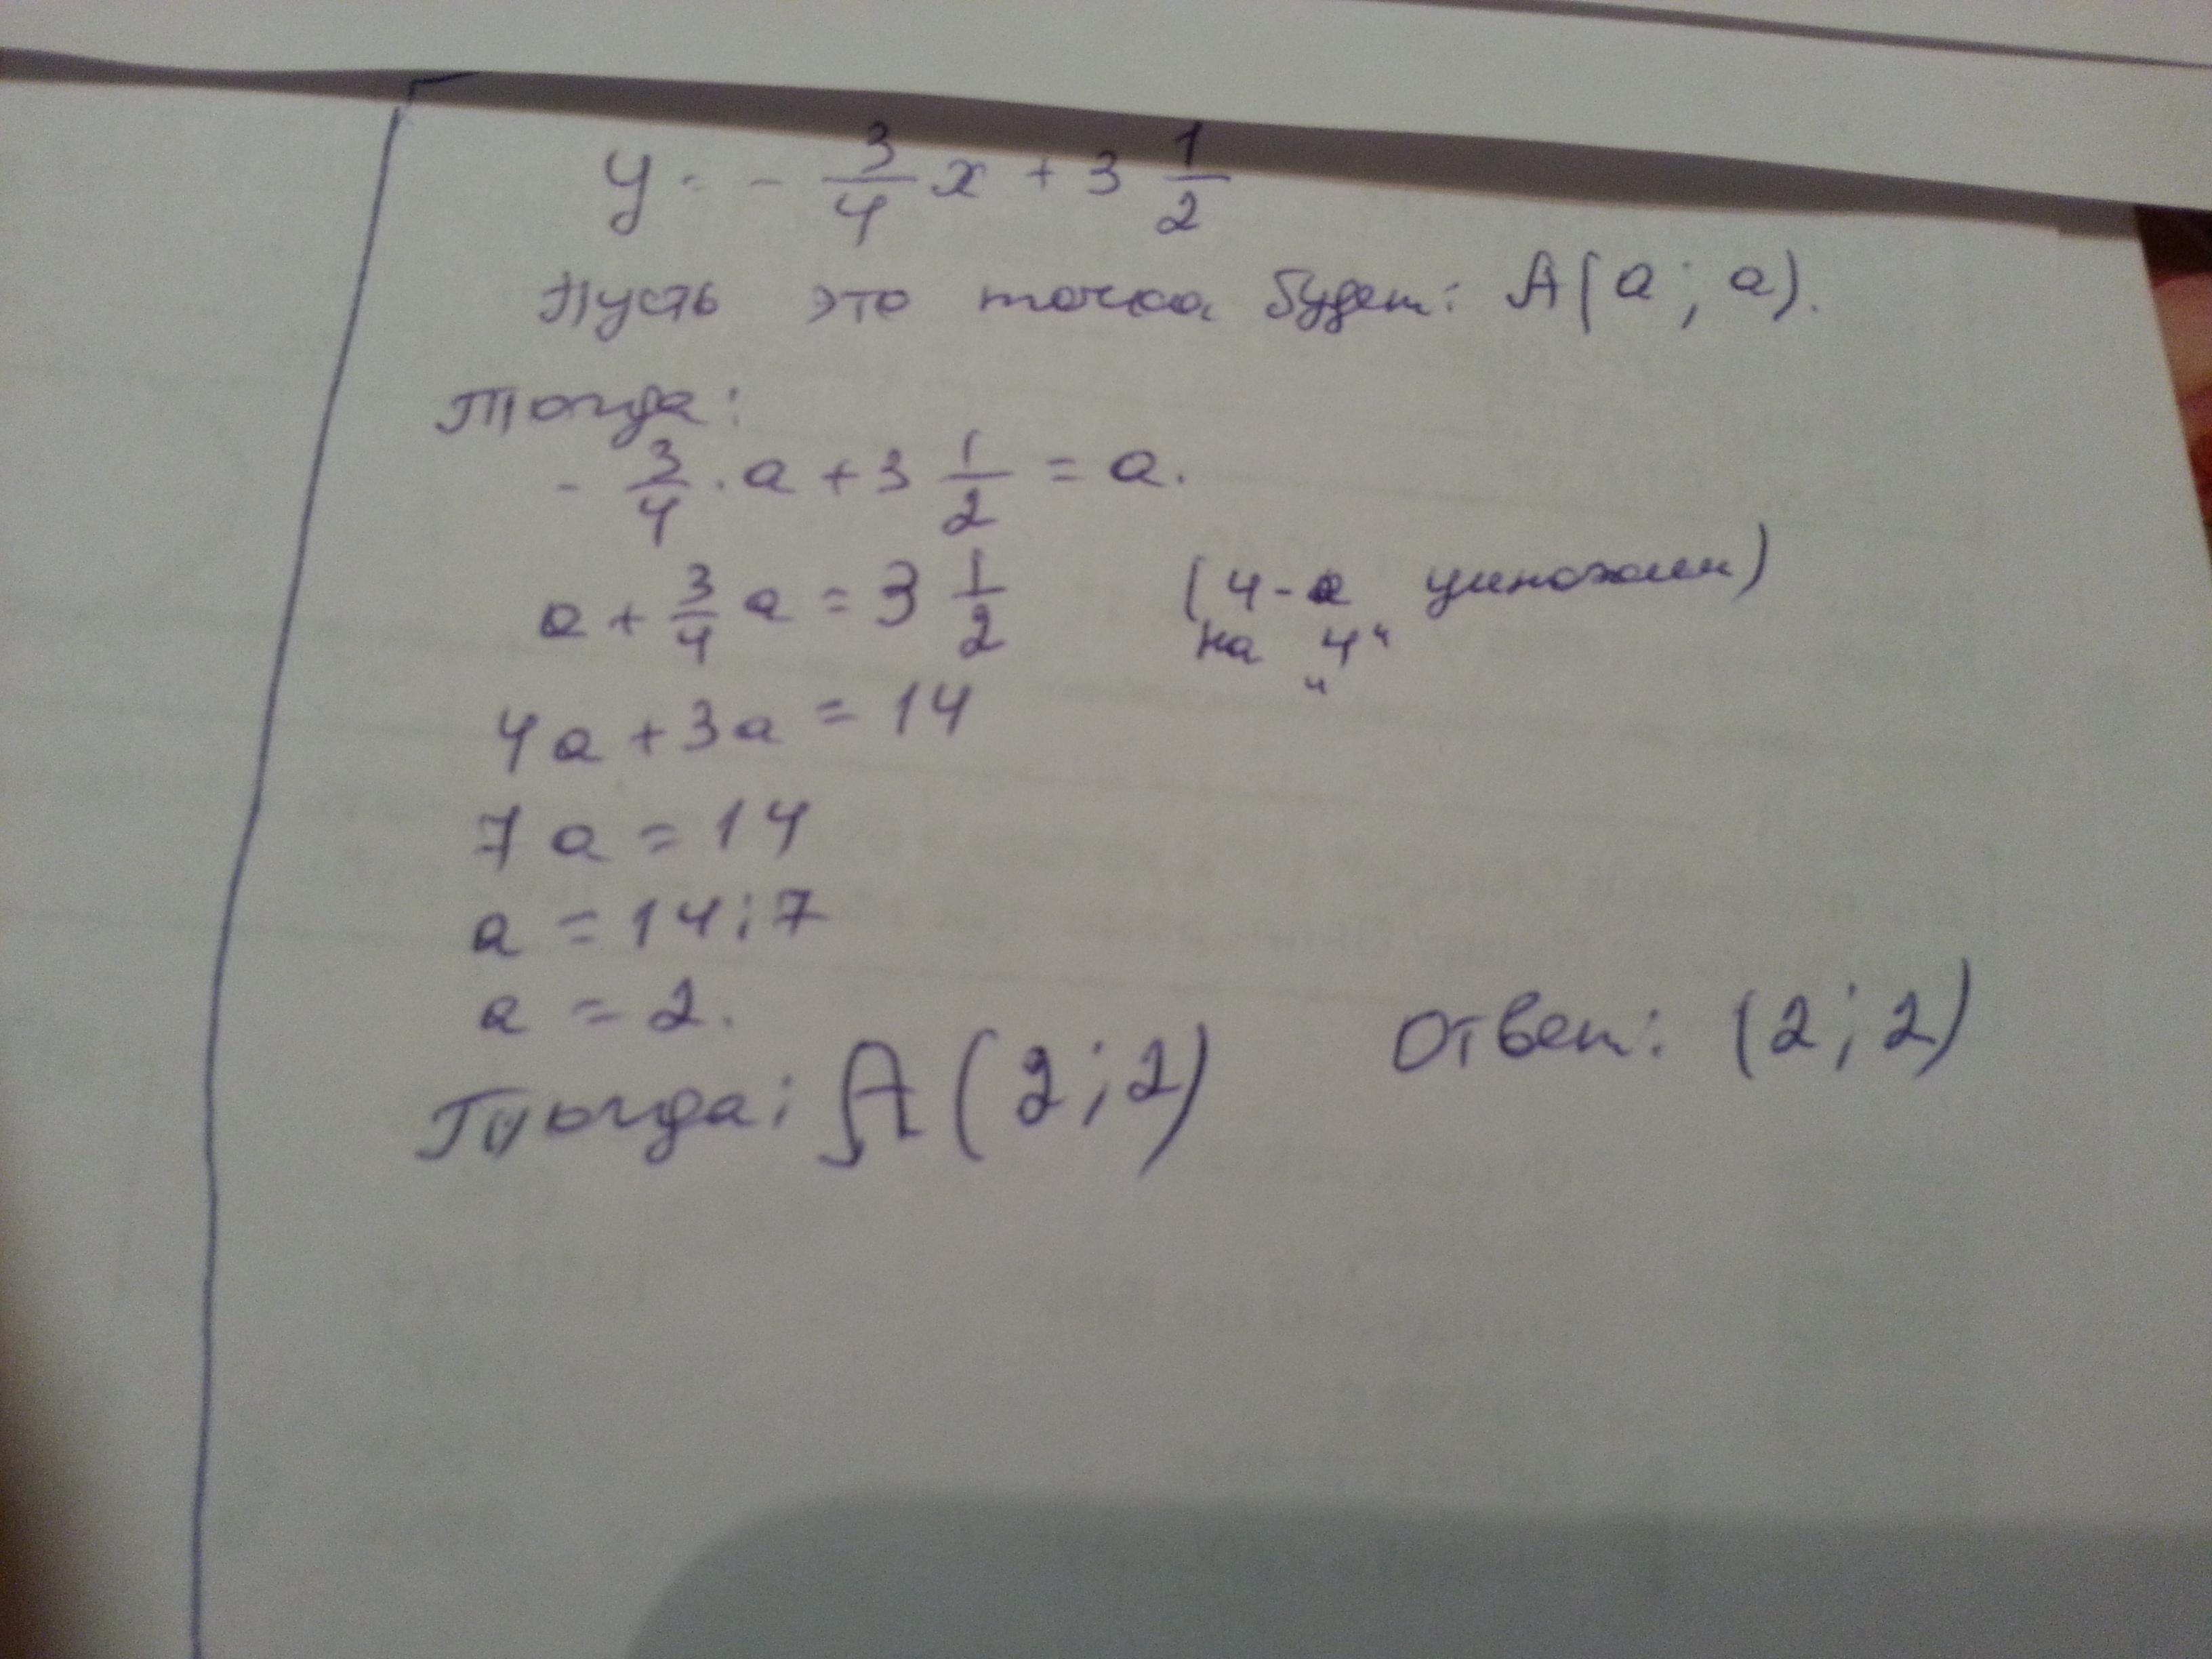 y = - 3/4 x + 3 1/2
Пусть это точка будет: A(a; a).
Тогда:
- 3/4 · a + 3 1/2 = a.
a + 3/4 a = 3 1/2 (4-е умножим)
на "4"
4a + 3a = 14
7a = 14
a = 14:7
a = 2.
Тогда: A(2;2)
Ответ: (2;2)